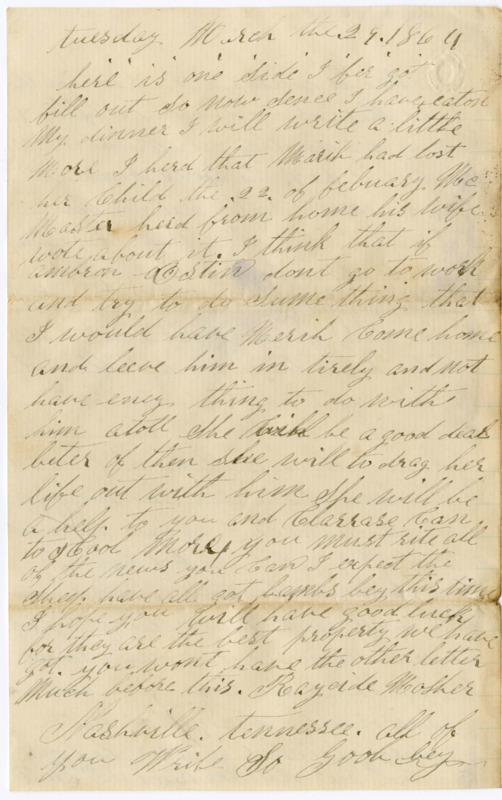 tuesday March the 29. 1864
here is one side I fer got
fill out So now sence I have eaton
My dinner I will write a little
More I herd that Marih had lost
her Child the 22. of febuary Mc
Master herd from home his wife
wote about it. I think that if
ambron Ostin dont go to work
and try to do Sume thing that
I would have Merih Come home
and leeve him in tirely and not
have eney thing to do with
him atoll She will be a good deal
biter of then she will to drag her
life out with him She will be
a help to you and Clarrase Can
to School More, you must rite all
of the news you Can I expect the
sheep have all got Lambs bey this time
I hope you will have good luck
for they are the best property we have
got. you wont have the other letter
Much before this. Mother
Nashville. tennessee. all of
you Write So Goob bey